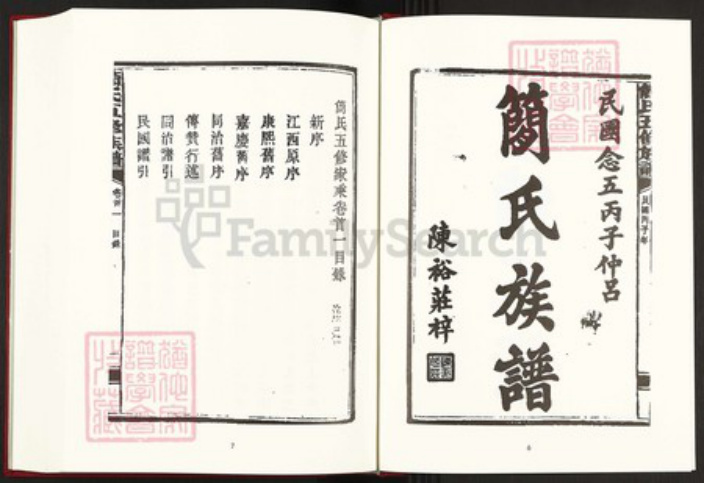 民國念五丙子仲呂
簡氏族譜
陳裕莊梓
簡氏五修族譜
民國丙子年
6
簡氏五修家乘卷首一目錄
新序
江西原序
康熙舊序
嘉慶舊序
同治舊序
傳贊行述
同治譜引
民國譜引
簡氏五修族譜
卷首一 目錄
7
FamilySearch